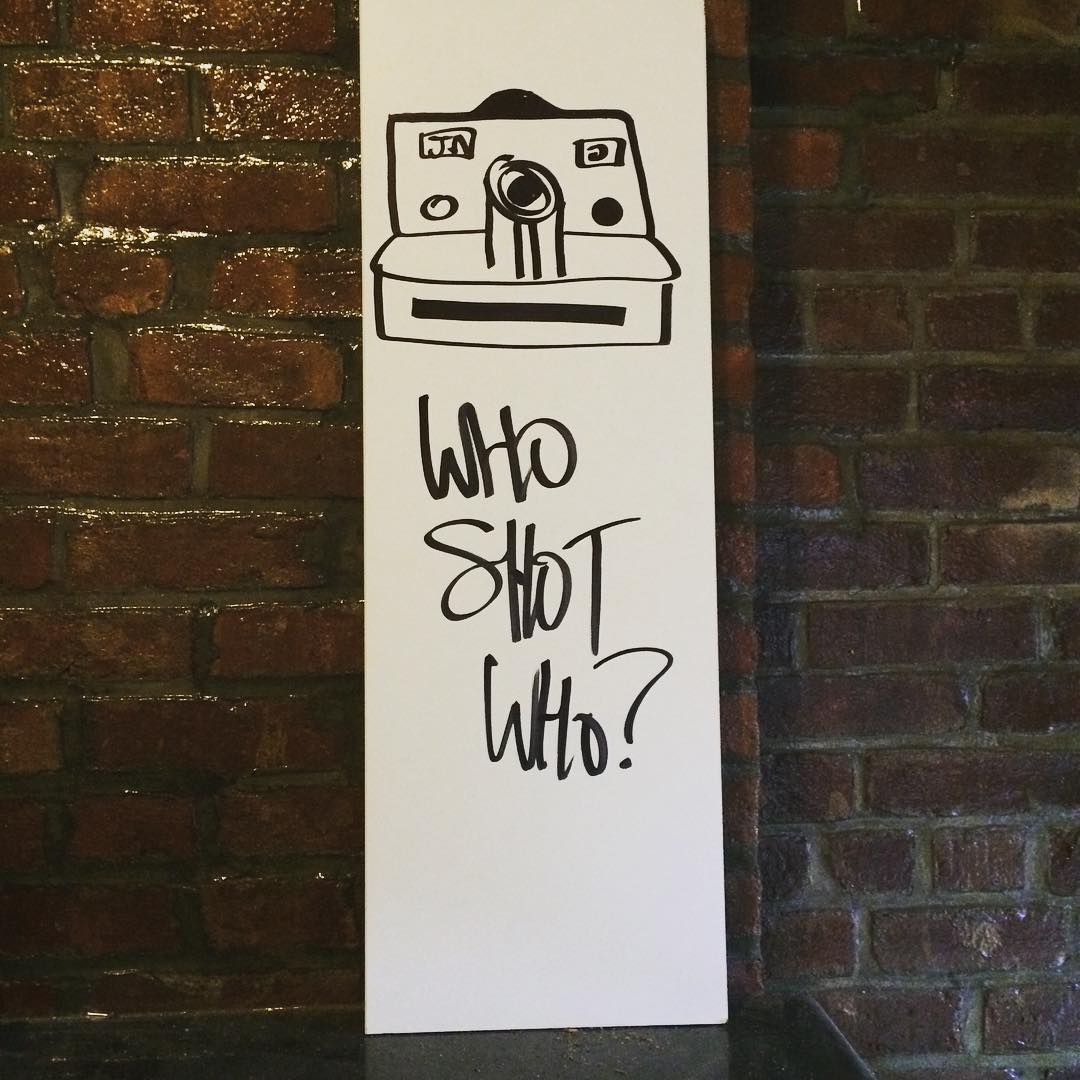 WHO
SHOT
WHO?